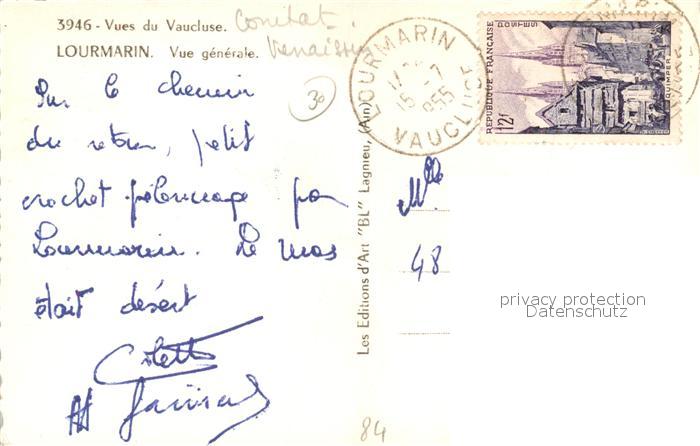 3946 - Vues du Vaucluse. Comitat
LOURMARIN. Vue générale. Venaissin
30
LOURMARIN
15 -7
1955
VAUCLUSE
RÉPUBLIQUE FRANÇAISE
POSTES
QUIMPER
12F
Sur le chemin
du retour, petit
crochet pèlerinage par
Lourmarin. Le mas
était désert
Colette
Les Editions d'Art "BL" Lagnieu, (Ain)
Mlle
48
privacy protection
Datenschutz
84